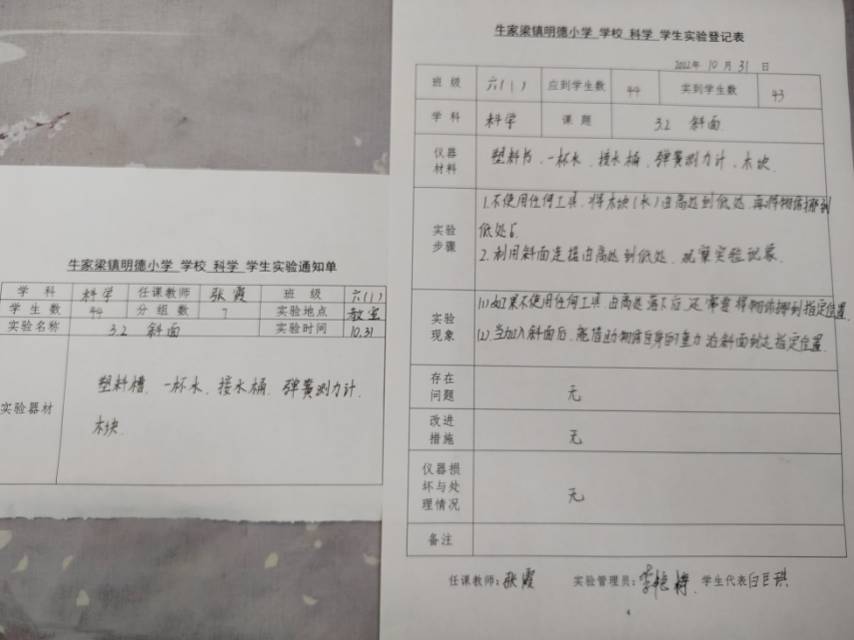 牛家梁镇明德小学 学校 科学 学生实验通知单
学 科 科学 任课教师 张霞 班 级 六(1)
学 生 数 44 分 组 数 7 实验地点 教室
实验名称 3.2 斜面 实验时间 10.31
实验器材 塑料槽、一杯水、接水桶、弹簧测力计、
木块.
牛家梁镇明德小学 学校 科学 学生实验登记表
2022年 10 月 31 日
班 级 六(1) 应到学生数 44 实到学生数 43
学 科 科学 课 题 3.2 斜面
仪器材料 塑料 、一杯水、接水桶、弹簧测力计、木块.
实验步骤 1.不使用任何工具,将木块(水)由高处到低处,再将物体挪到
低处
2.利用斜面连接由高处到低处,观察实验现象.
实验现象 (1)如果不使用任何工具由高处落下后,还需要将物体挪到指定位置.
(2)当加入斜面后,能借助物体自身的重力沿斜面到达指定位置.
存在问题 无
改进措施 无
仪器损坏与处理情况 无
备注
任课教师:张霞 实验管理员: 学生代表